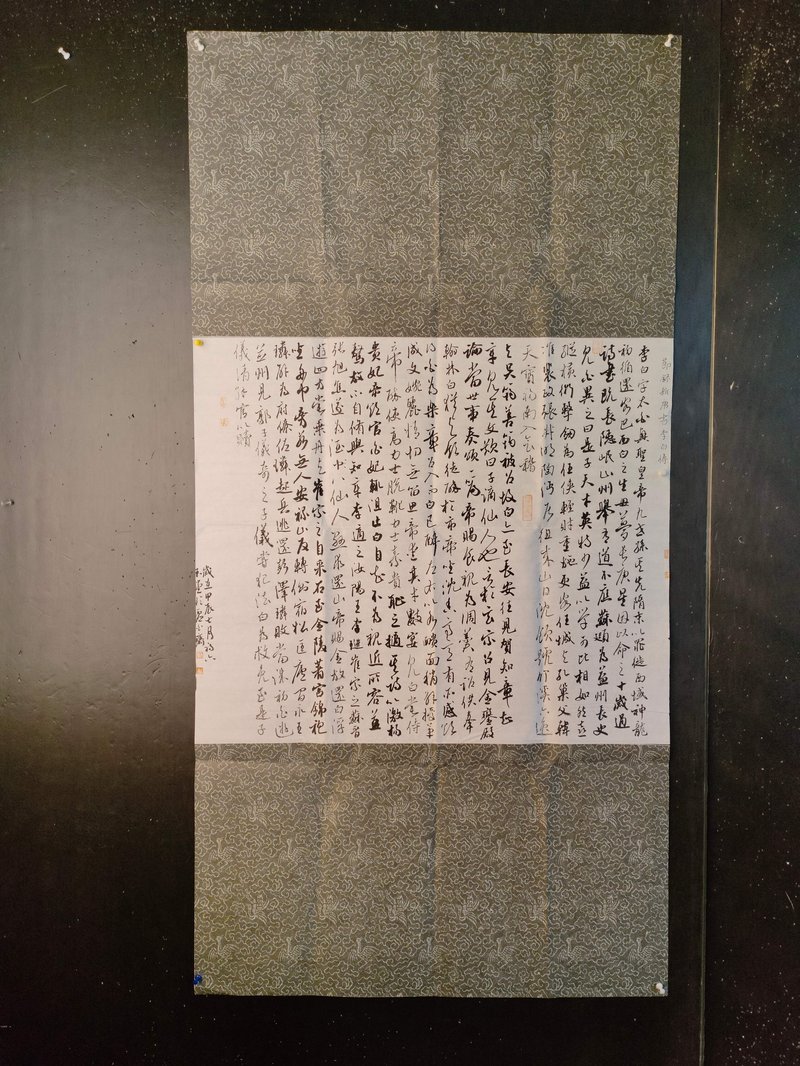 節錄新唐書李白傳
李白字太白興聖皇帝九世孫其先隋末以罪徙西域神龍
初遁還客巴西白之生母夢長庚星因以命之十歲通
詩書既長隱岷山州舉有道不應蘇頲為益州長史
見白異之曰是子天才英特少益以學可比相如然喜
縱橫術擊劍為任俠輕財重施更客任城與孔巢父韓
準裴政張叔明陶沔居徂徠山日沈飲號竹溪六逸
天寶初南入會稽
與吳筠善筠被召故白亦至長安往見賀知章知
章見其文歎曰子謫仙人也言於玄宗召見金鑾殿
論當世事奏頌一篇帝賜食親為調羹有詔供奉
翰林白猶與飲徒醉於市帝坐沈香亭子意有所感欲
得白為樂章召入而白已醉左右以水頮面稍解授筆
成文婉麗精切無留思帝愛其才數宴見白嘗侍
帝醉使高力士脫靴力士素貴恥之擿其詩以激楊
貴妃帝欲官白妃輒沮止白自知不為親近所容益
驁放不自脩與知章李適之汝陽王璡崔宗之蘇晉
張旭焦遂為酒中八仙人懇求還山帝賜金放還白浮
遊四方嘗乘舟與崔宗之自采石至金陵著宮錦袍
坐舟中旁若無人安祿山反轉側宿松匡廬間永王
璘辟為府僚佐璘起兵逃還彭澤璘敗當誅初白遊
并州見郭子儀奇之子儀嘗犯法白為救免至是子
儀請解官以贖
歲在甲辰七月初六